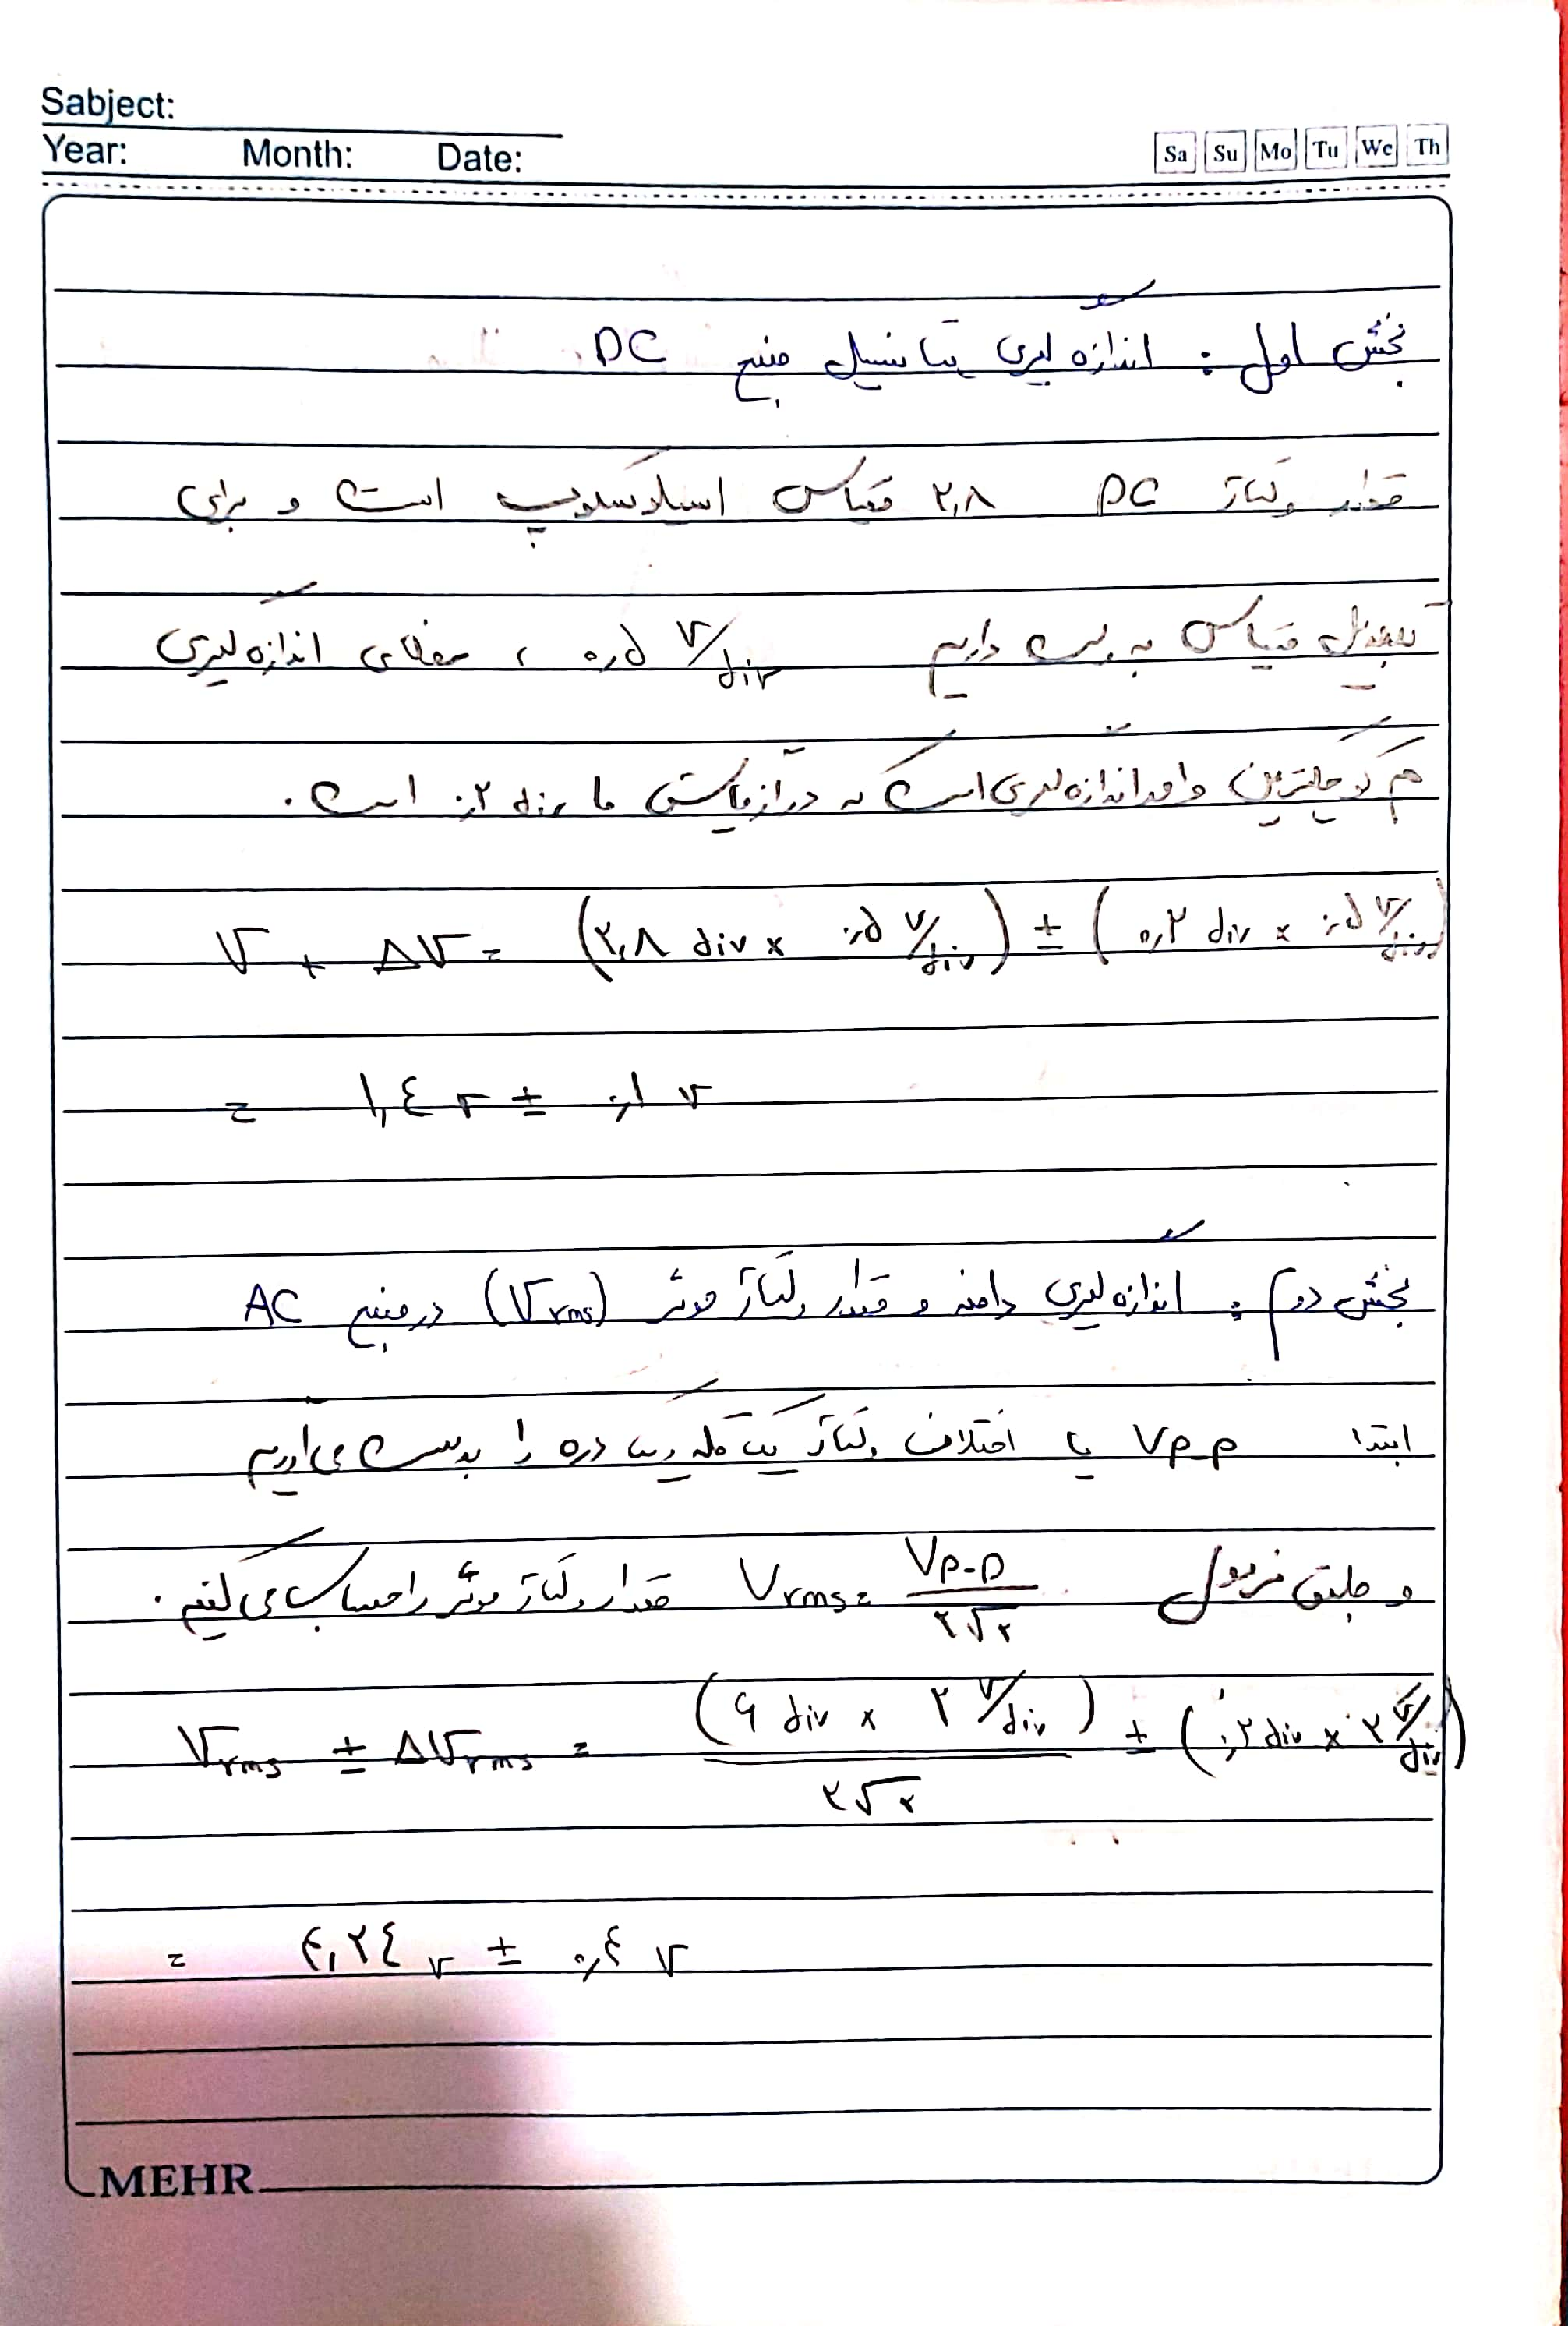 Sabject:
Year: Month: Date:
Sa Su Mo Tu We Th
بخش اول : اندازه گیری پتانسیل منبع DC
مقدار ولتاژ DC ۲,۸ مقیاس اسیلوسکوپ است و برای
تبدیل مقیاس به ولت داریم ۰,۵ V/div ، خطای اندازه گیری
هم کوچکترین واحد اندازه گیری است که در آزمایش ما ۰,۲ div است .
V ± ΔV = (۲,۸ div × ۰,۵ V/div) ± (۰,۲ div × ۰,۵ V/div)
= ۱,۴ V ± ۰,۱ V
بخش دوم : اندازه گیری دامنه و مقدار ولتاژ موثر (Vrms) در منبع AC
ابتدا Vp-p یا اختلاف ولتاژ یک قله و یک دره را بدست می آوریم
و طبق فرمول Vrms = Vp-p / ۲√۲ مقدار ولتاژ موثر را حساب می کنیم .
Vrms ± ΔVrms = (۶ div × ۲ V/div) / ۲√۲ ± (۰,۲ div × ۲ V/div)
= ۴,۲۴ V ± ۰,۴ V
MEHR